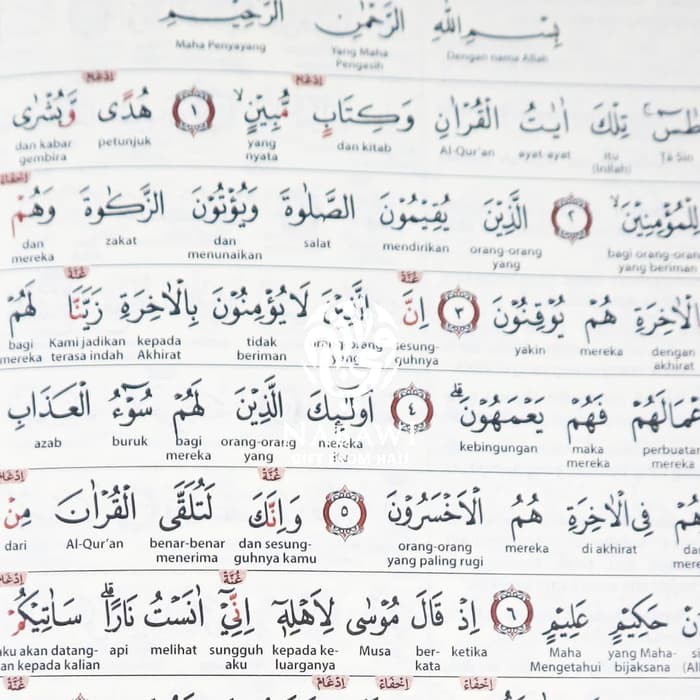 بِسْمِ اللّٰهِ الرَّحْمٰنِ الرَّحِيْمِ
Dengan nama Allah Yang Maha Pengasih Maha Penyayang
اِدْغَامْ اِدْغَامْ
طٰسۤ ۚ تِلْكَ اٰيٰتُ الْقُرْاٰنِ وَكِتَابٍ مُّبِيْنٍ ۙ ١ هُدًى وَّبُشْرٰى
Ṭā Sīn itu (inilah) ayat-ayat Al-Qur'an dan kitab yang nyata petunjuk dan kabar gembira
اِخْفَاءْ
لِلْمُؤْمِنِيْنَ ۙ ٢ الَّذِيْنَ يُقِيْمُوْنَ الصَّلٰوةَ وَيُؤْتُوْنَ الزَّكٰوةَ وَهُمْ
bagi orang-orang yang beriman orang-orang yang mendirikan salat dan menunaikan zakat dan mereka
غُنَّةْ غُنَّةْ
بِالْاٰخِرَةِ هُمْ يُوْقِنُوْنَ ٣ اِنَّ الَّذِيْنَ لَا يُؤْمِنُوْنَ بِالْاٰخِرَةِ زَيَّنَّا لَهُمْ
dengan akhirat mereka yakin sesung-guhnya orang-orang yang tidak beriman kepada Akhirat Kami jadikan terasa indah bagi mereka
اَعْمَالَهُمْ فَهُمْ يَعْمَهُوْنَ ۗ ٤ اُولٰۤىِٕكَ الَّذِيْنَ لَهُمْ سُوْۤءُ الْعَذَابِ
perbuatan mereka maka mereka kebingungan mereka itu orang-orang yang bagi mereka buruk azab
غُنَّةْ اِدْغَامْ
وَهُمْ فِى الْاٰخِرَةِ هُمُ الْاَخْسَرُوْنَ ٥ وَاِنَّكَ لَتُلَقَّى الْقُرْاٰنَ مِنْ
di akhirat mereka orang-orang yang paling rugi dan sesung-guhnya kamu benar-benar menerima Al-Qur'an dari
غُنَّةْ اِدْغَامْ
حَكِيْمٍ عَلِيْمٍ ٦ اِذْ قَالَ مُوْسٰى لِاَهْلِهٖٓ اِنِّيْٓ اٰنَسْتُ نَارًا ۗ سَاٰتِيْكُمْ
yang Maha-bijaksana Maha Mengetahui ketika ber-kata Musa kepada ke-luarganya sungguh aku melihat api aku akan datang-kan kepada kalian
اِخْفَاءْ اِخْفَاءْ اِدْغَامْ غُنَّةْ
NABAWI
GIFT FROM HAJJ